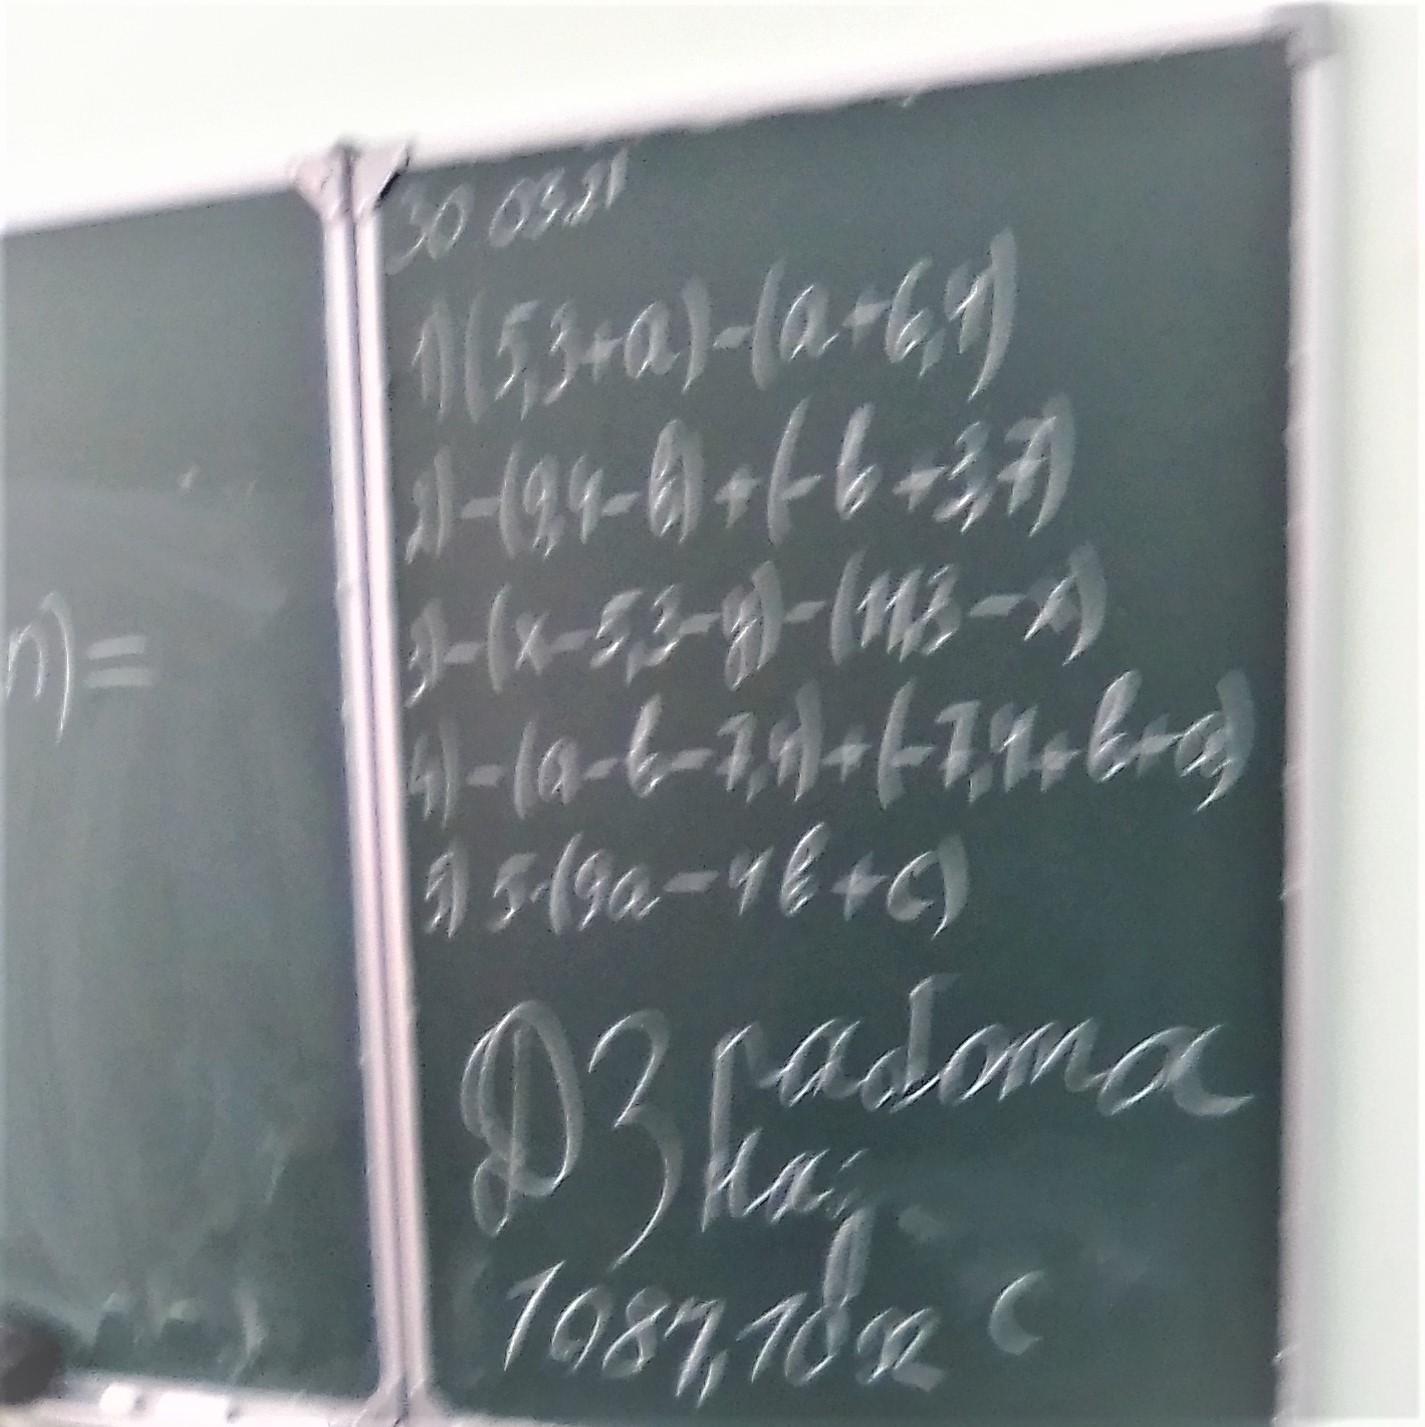 n)=
30 03.21
1) (5,3+a)-(a+6,4)
2) -(9,4-b)+(-b+3,7)
3) -(x-5,3-y)-(11,3-x)
4) -(a-b-7,4)+(-7,4+b+a)
5) 5·(9a-4b+c)
ДЗ работа
над
1087,